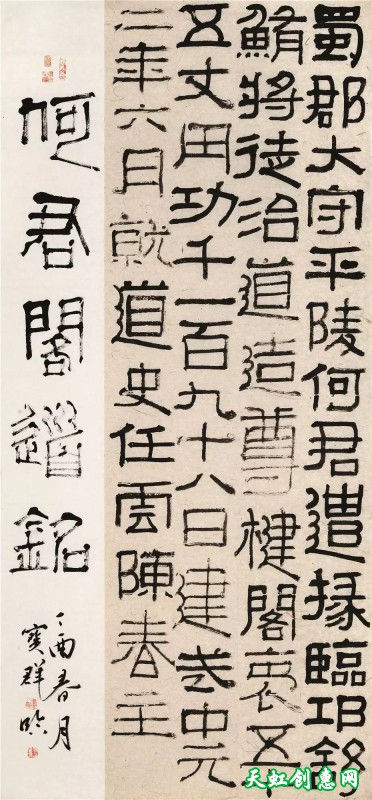 蜀郡大守平陵何君遣掾臨邛舒
鮪將徒治道造尊楗閣袤五十
五丈用功千一百九十八日建武中元
二年六月就道史任雲陳春主
何君閣道銘
丁酉春月
寶群臨
天虹创意网